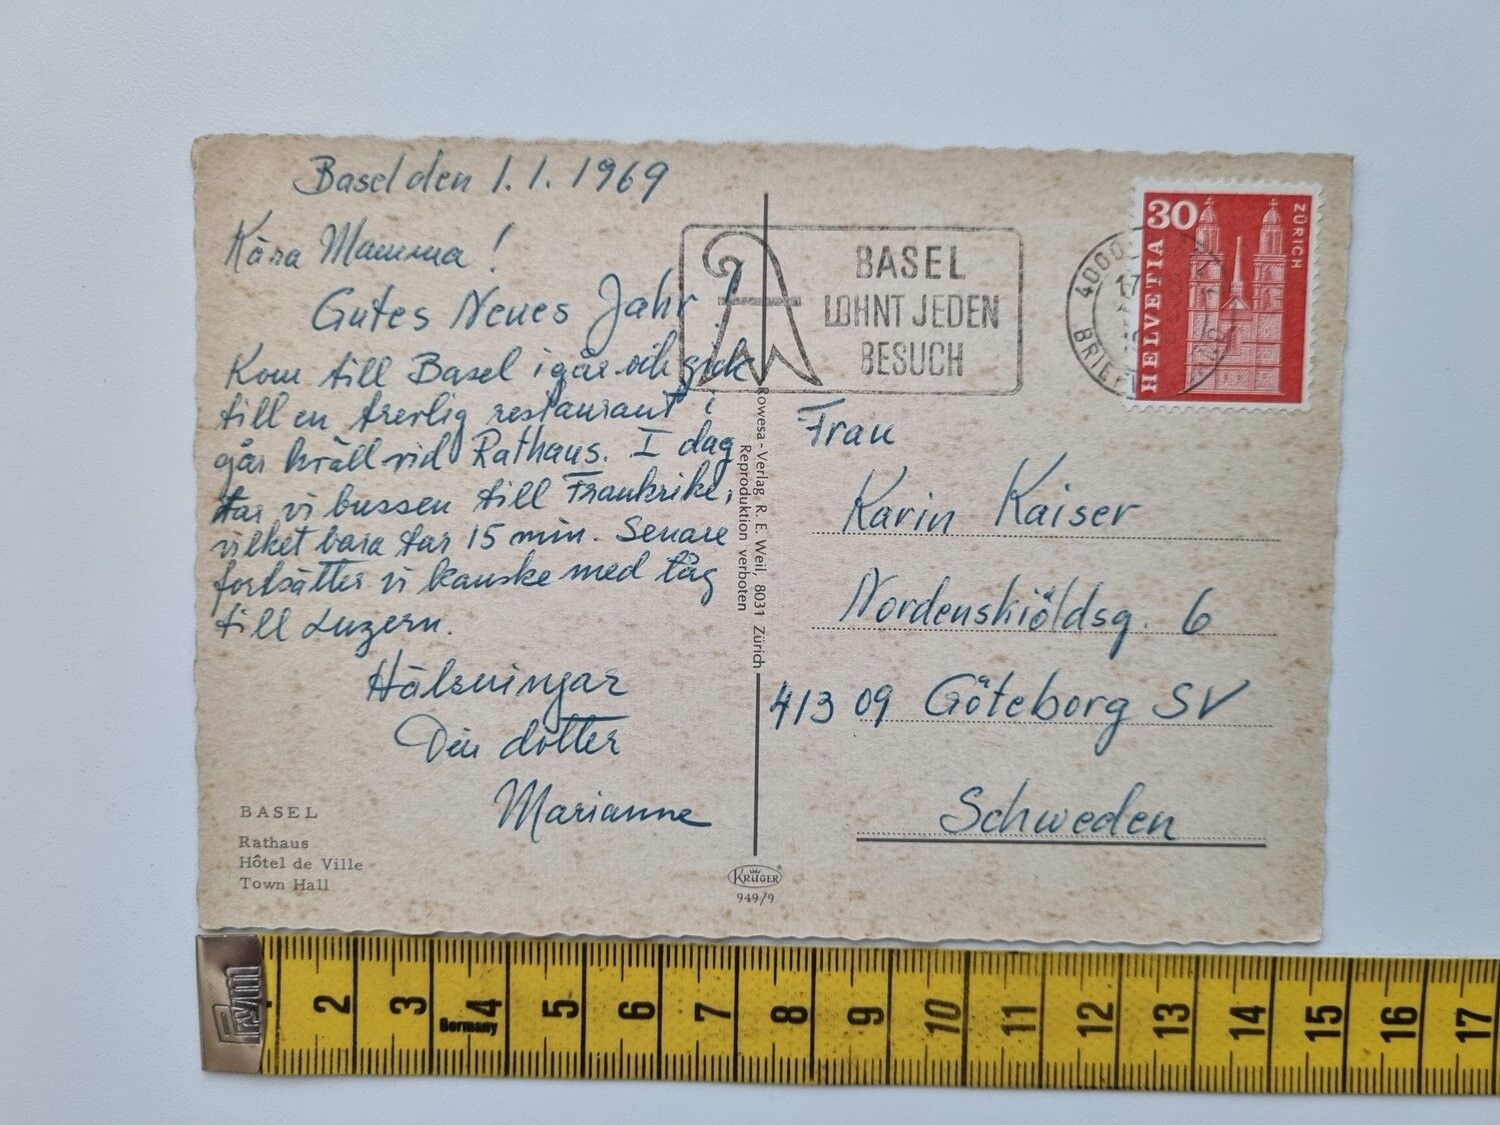 Basel den 1.1.1969
Kära Mamma!
Gutes Neues Jahr!
Kom till Basel igår och gick
till en trevlig restaurant i
går kväll vid Rathaus. I dag
tar vi bussen till Frankrike,
vilket bara tar 15 min. Senare
fortsätter vi kanske med tåg
till Luzern.
Hälsningar
Din dotter
Marianne
BASEL
Rathaus
Hôtel de Ville
Town Hall
Rowesa - Verlag R. E. Weil, 8031 Zürich
Reproduktion verboten
KRÜGER
949/9
BASEL
LOHNT JEDEN
BESUCH
4000
17
BRIEF
30
HELVETIA
ZÜRICH
Frau
Karin Kaiser
Nordenskiöldsg. 6
413 09 Göteborg SV
Schweden
Prym
2 3 4 5 6 7 8 9 10 11 12 13 14 15 16 17
Germany